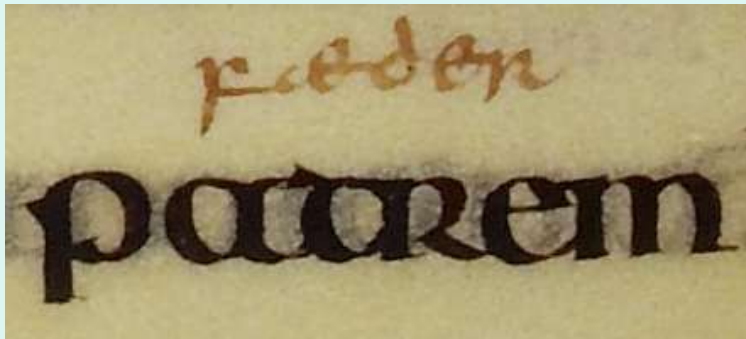 fæder
patrem